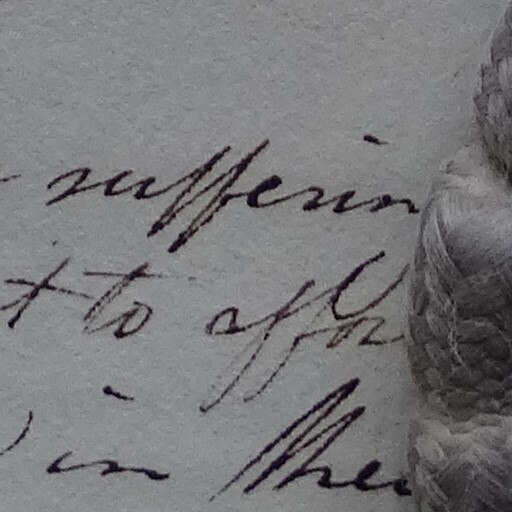 sufferin
t to affor
in their